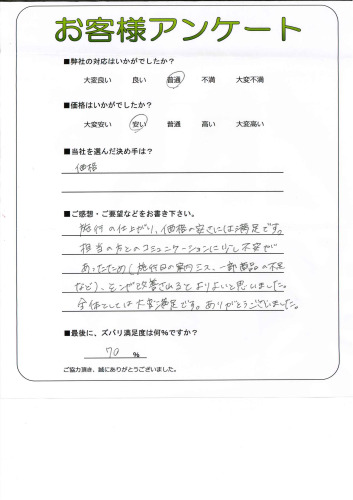 お客様アンケート
■弊社の対応はいかがでしたか？
大変良い 良い 普通 不満 大変不満
■価格はいかがでしたか？
大変安い 安い 普通 高い 大変高い
■当社を選んだ決め手は？
価格
■ご感想・ご要望などをお書き下さい。
施行の仕上がり、価格の安さには満足です。
担当の方とのコミュニケーションに少し不安が
あったため（施行日の案内ミス、一部商品の不足
など）、そこが改善されるとよりよいと思いました。
全体としては大変満足です。ありがとうございました。
■最後に、ズバリ満足度は何％ですか？
70 ％
ご協力頂き、誠にありがとうございました。